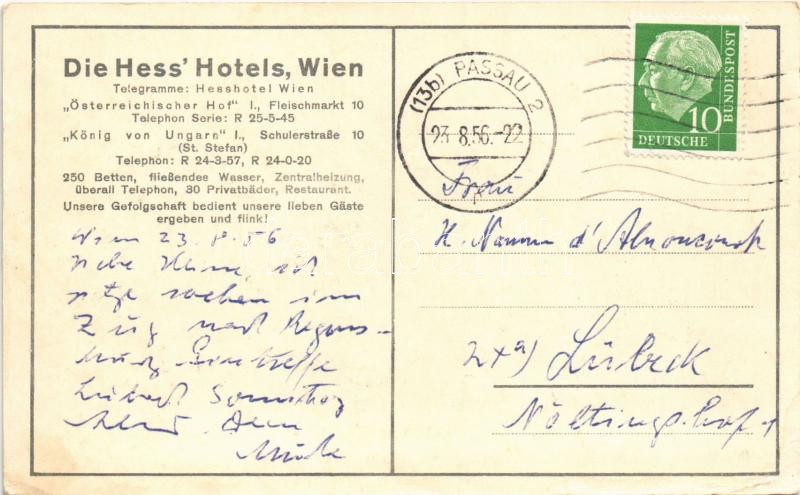 Die Hess' Hotels, Wien
Telegramme: Hesshotel Wien
„Österreichischer Hof" I., Fleischmarkt 10
Telephon Serie: R 25-5-45
„König von Ungarn" I., Schulerstraße 10
(St. Stefan)
Telephon: R 24-3-57, R 24-0-20
250 Betten, fließendes Wasser, Zentralheizung,
überall Telephon, 30 Privatbäder, Restaurant.
Unsere Gefolgschaft bedient unsere lieben Gäste
ergeben und flink!
Wien 23.8.56
ich
sitze soeben im
Zug nach Regens-
burg. Eintreffe
Lübeck Sonntag
Abend. Dein
(13b) PASSAU 2
23.8.56.-22
DEUTSCHE
BUNDESPOST
10
Frau
H. d'
Lübeck